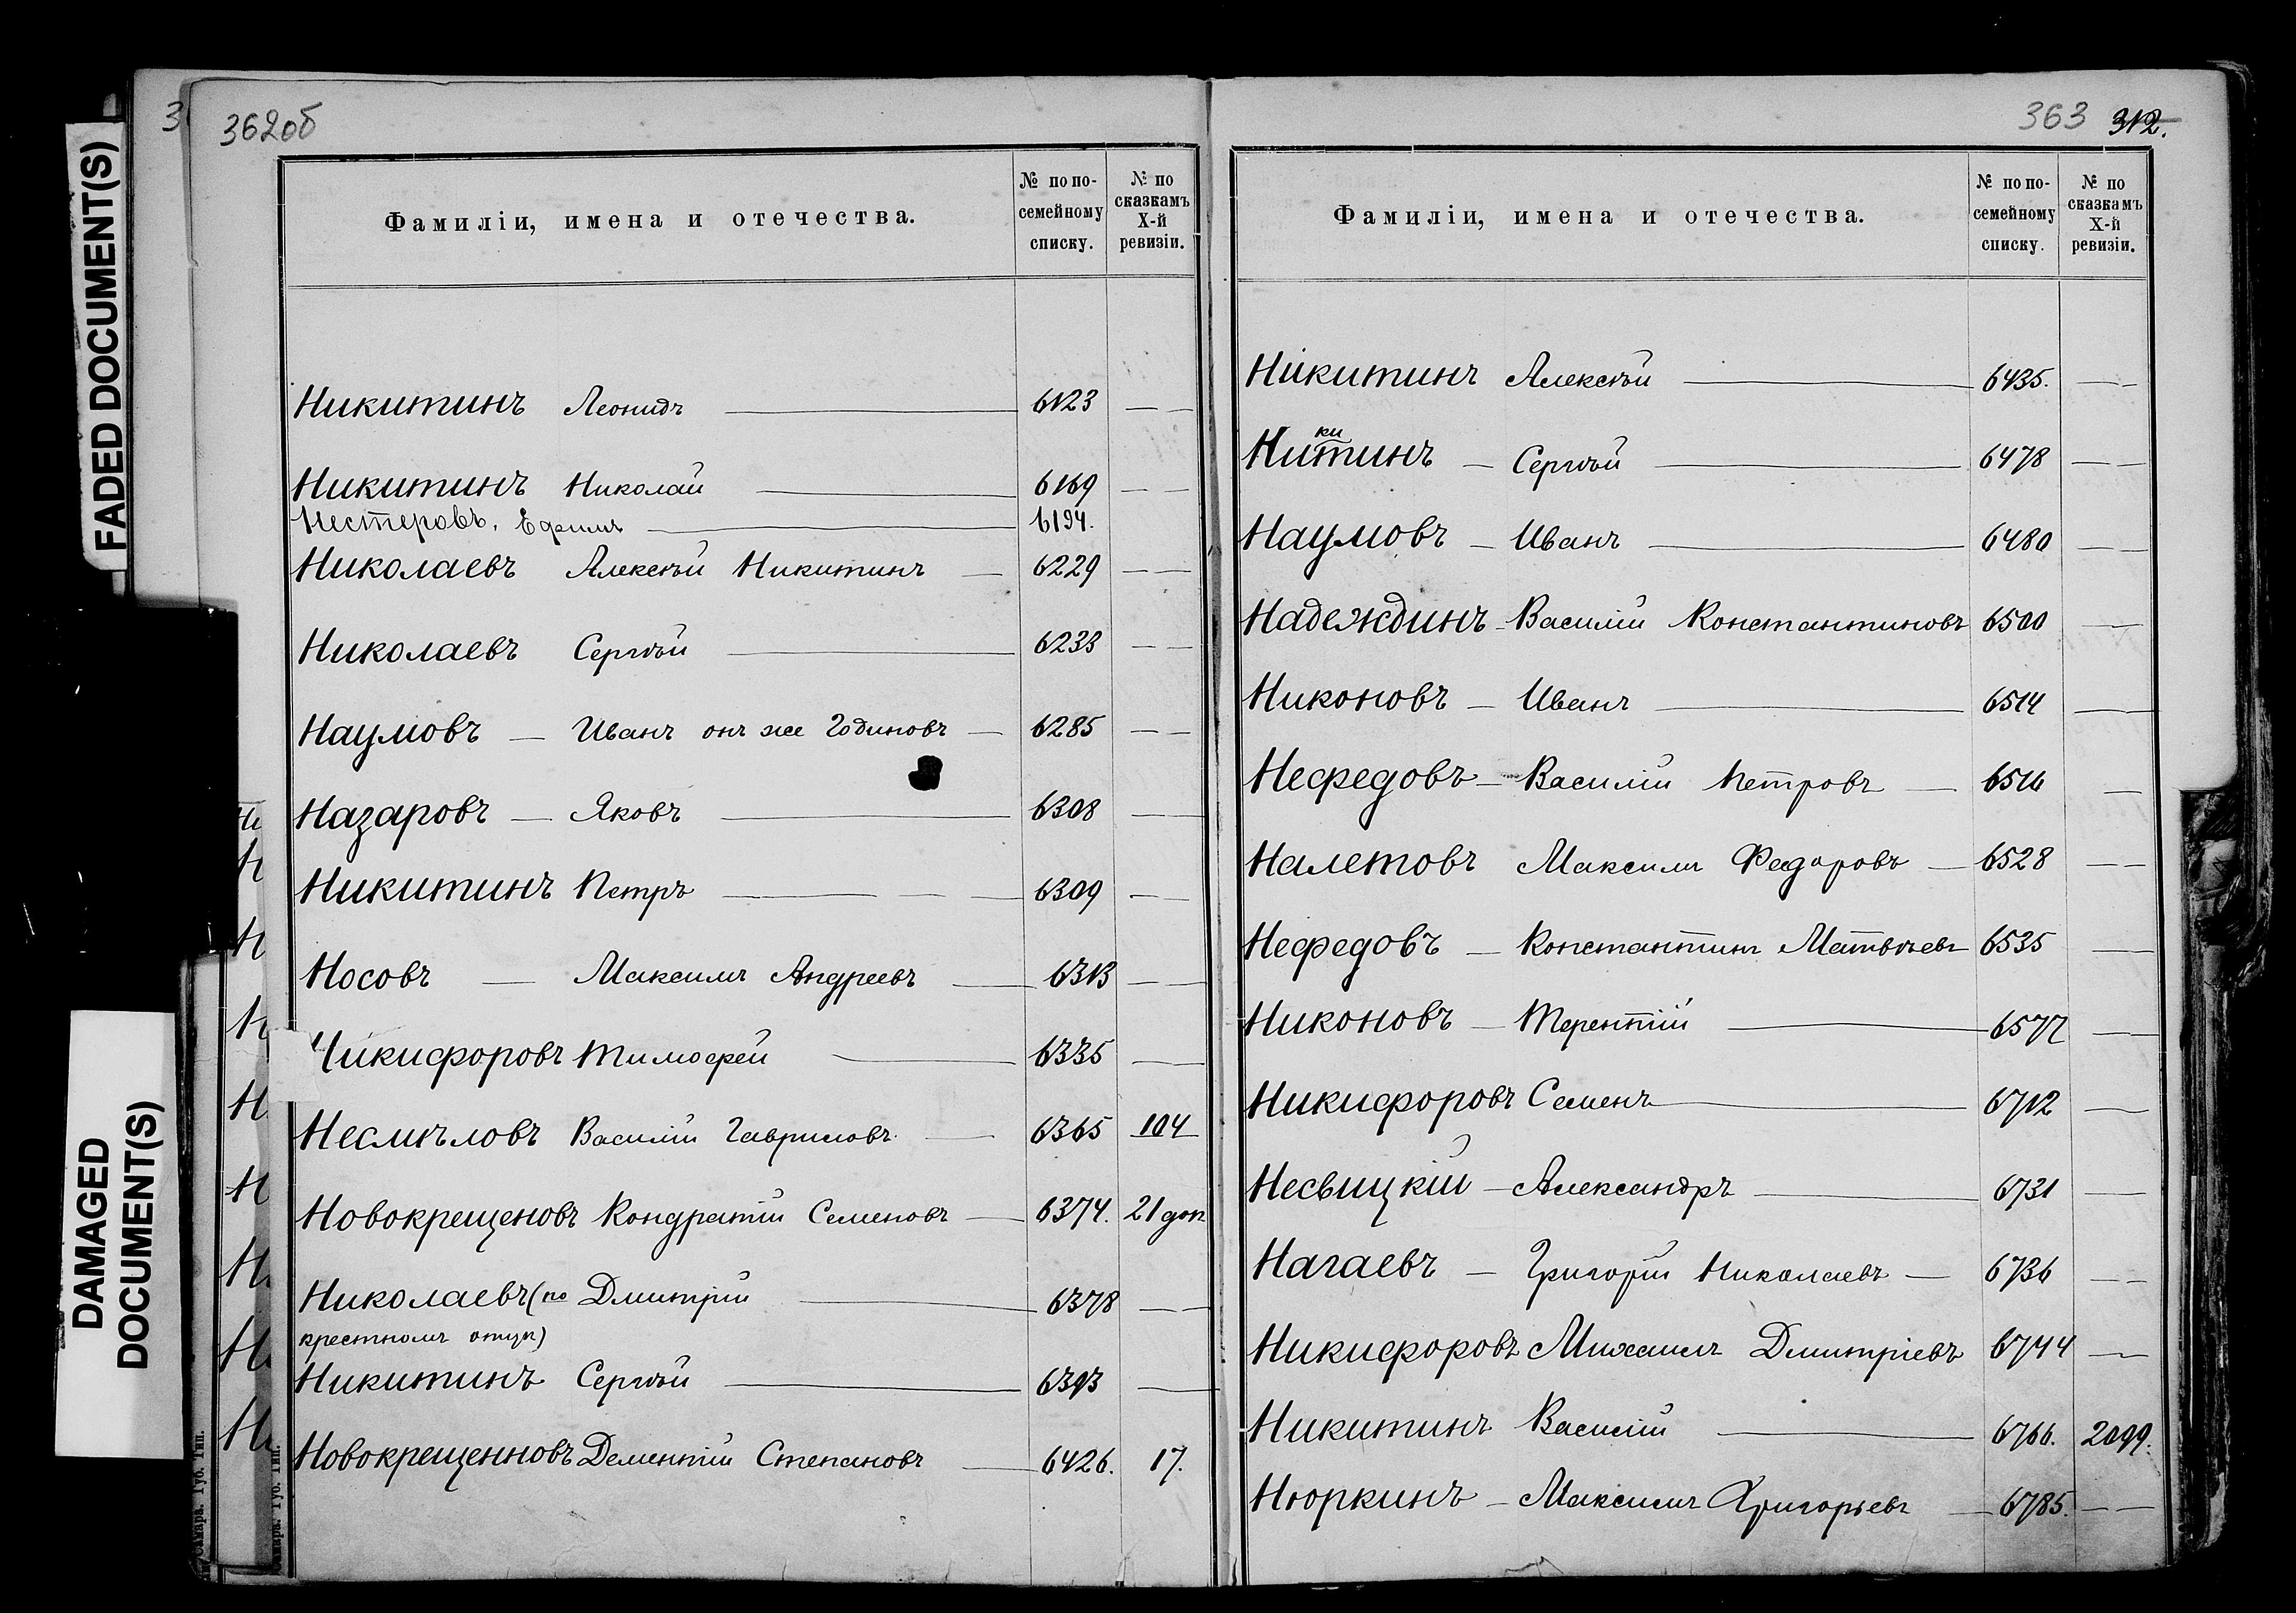 FADED DOCUMENT(S)
DAMAGED
DOCUMENT(S)
362об
Фамиліи, имена и отечества.
№ по по-
семейному
списку.
№ по
сказкамъ
X-й
ревизіи.
Никитинъ Леонидъ 6123 — —
Никитинъ Николай 6169 — —
Нестеровъ, Ефимъ 6194.
Николаевъ Алексѣй Никитинъ — 6229 — —
Николаевъ Сергѣй 6233 — —
Наумовъ — Иванъ онъ же Годиновъ — 6285 — —
Назаровъ — Яковъ 6308 —
Никитинъ Петръ 6309 —
Носовъ — Максимъ Андреевъ — 6313 — —
Никифоровъ Тимофей 6335 —
Несмѣловъ Василій Гавриловъ — 6365 104
Новокрещеновъ Кондратій Семеновъ — 6374. 21 доп
Николаевъ (по Дмитрій 6378 — —
крестному отцу)
Никитинъ Сергѣй 6393 —
Новокрещенновъ Дементій Степановъ — 6426. 17.
Самара. Губ. Тип.
363 312.
Фамиліи, имена и отечества.
№ по по-
семейному
списку.
№ по
сказкамъ
X-й
ревизіи.
Никитинъ Алексѣй 6435. — —
ки
Нитинъ — Сергѣй 6478 — —
Наумовъ — Иванъ 6480 — —
Надеждинъ — Василій Константиновъ 6500 —
Никоновъ — Иванъ 6514 —
Нефедовъ — Василій Петровъ — 6516 —
Налетовъ Максимъ Федоровъ — 6528 — —
Нефедовъ — Константинъ Матвѣевъ 6535 —
Никоновъ — Терентій 6577 —
Никифоровъ Семенъ 6712 —
Несвицкій — Александръ 6731 —
Нагаевъ — Григорій Николаевъ — 6736 — —
Никифоровъ Михаилъ Дмитріевъ 6744 —
Никитинъ Василій 6766. 2099.
Нюркинъ — Максимъ Григорьевъ — 6785. — —